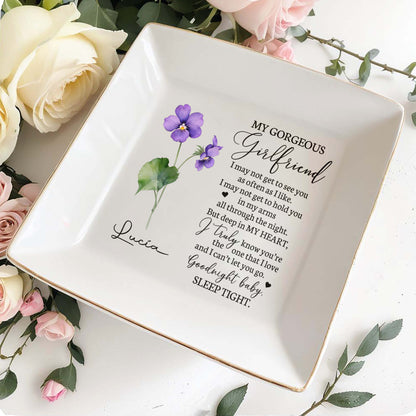 MY GORGEOUS
Girlfriend
I may not get to see you
as often as I like.
I may not get to hold you
in my arms
all through the night.
But deep in MY HEART,
I Truly know you're
the one that I love
and I can't let you go.
Goodnight baby,
SLEEP TIGHT.
Lucia